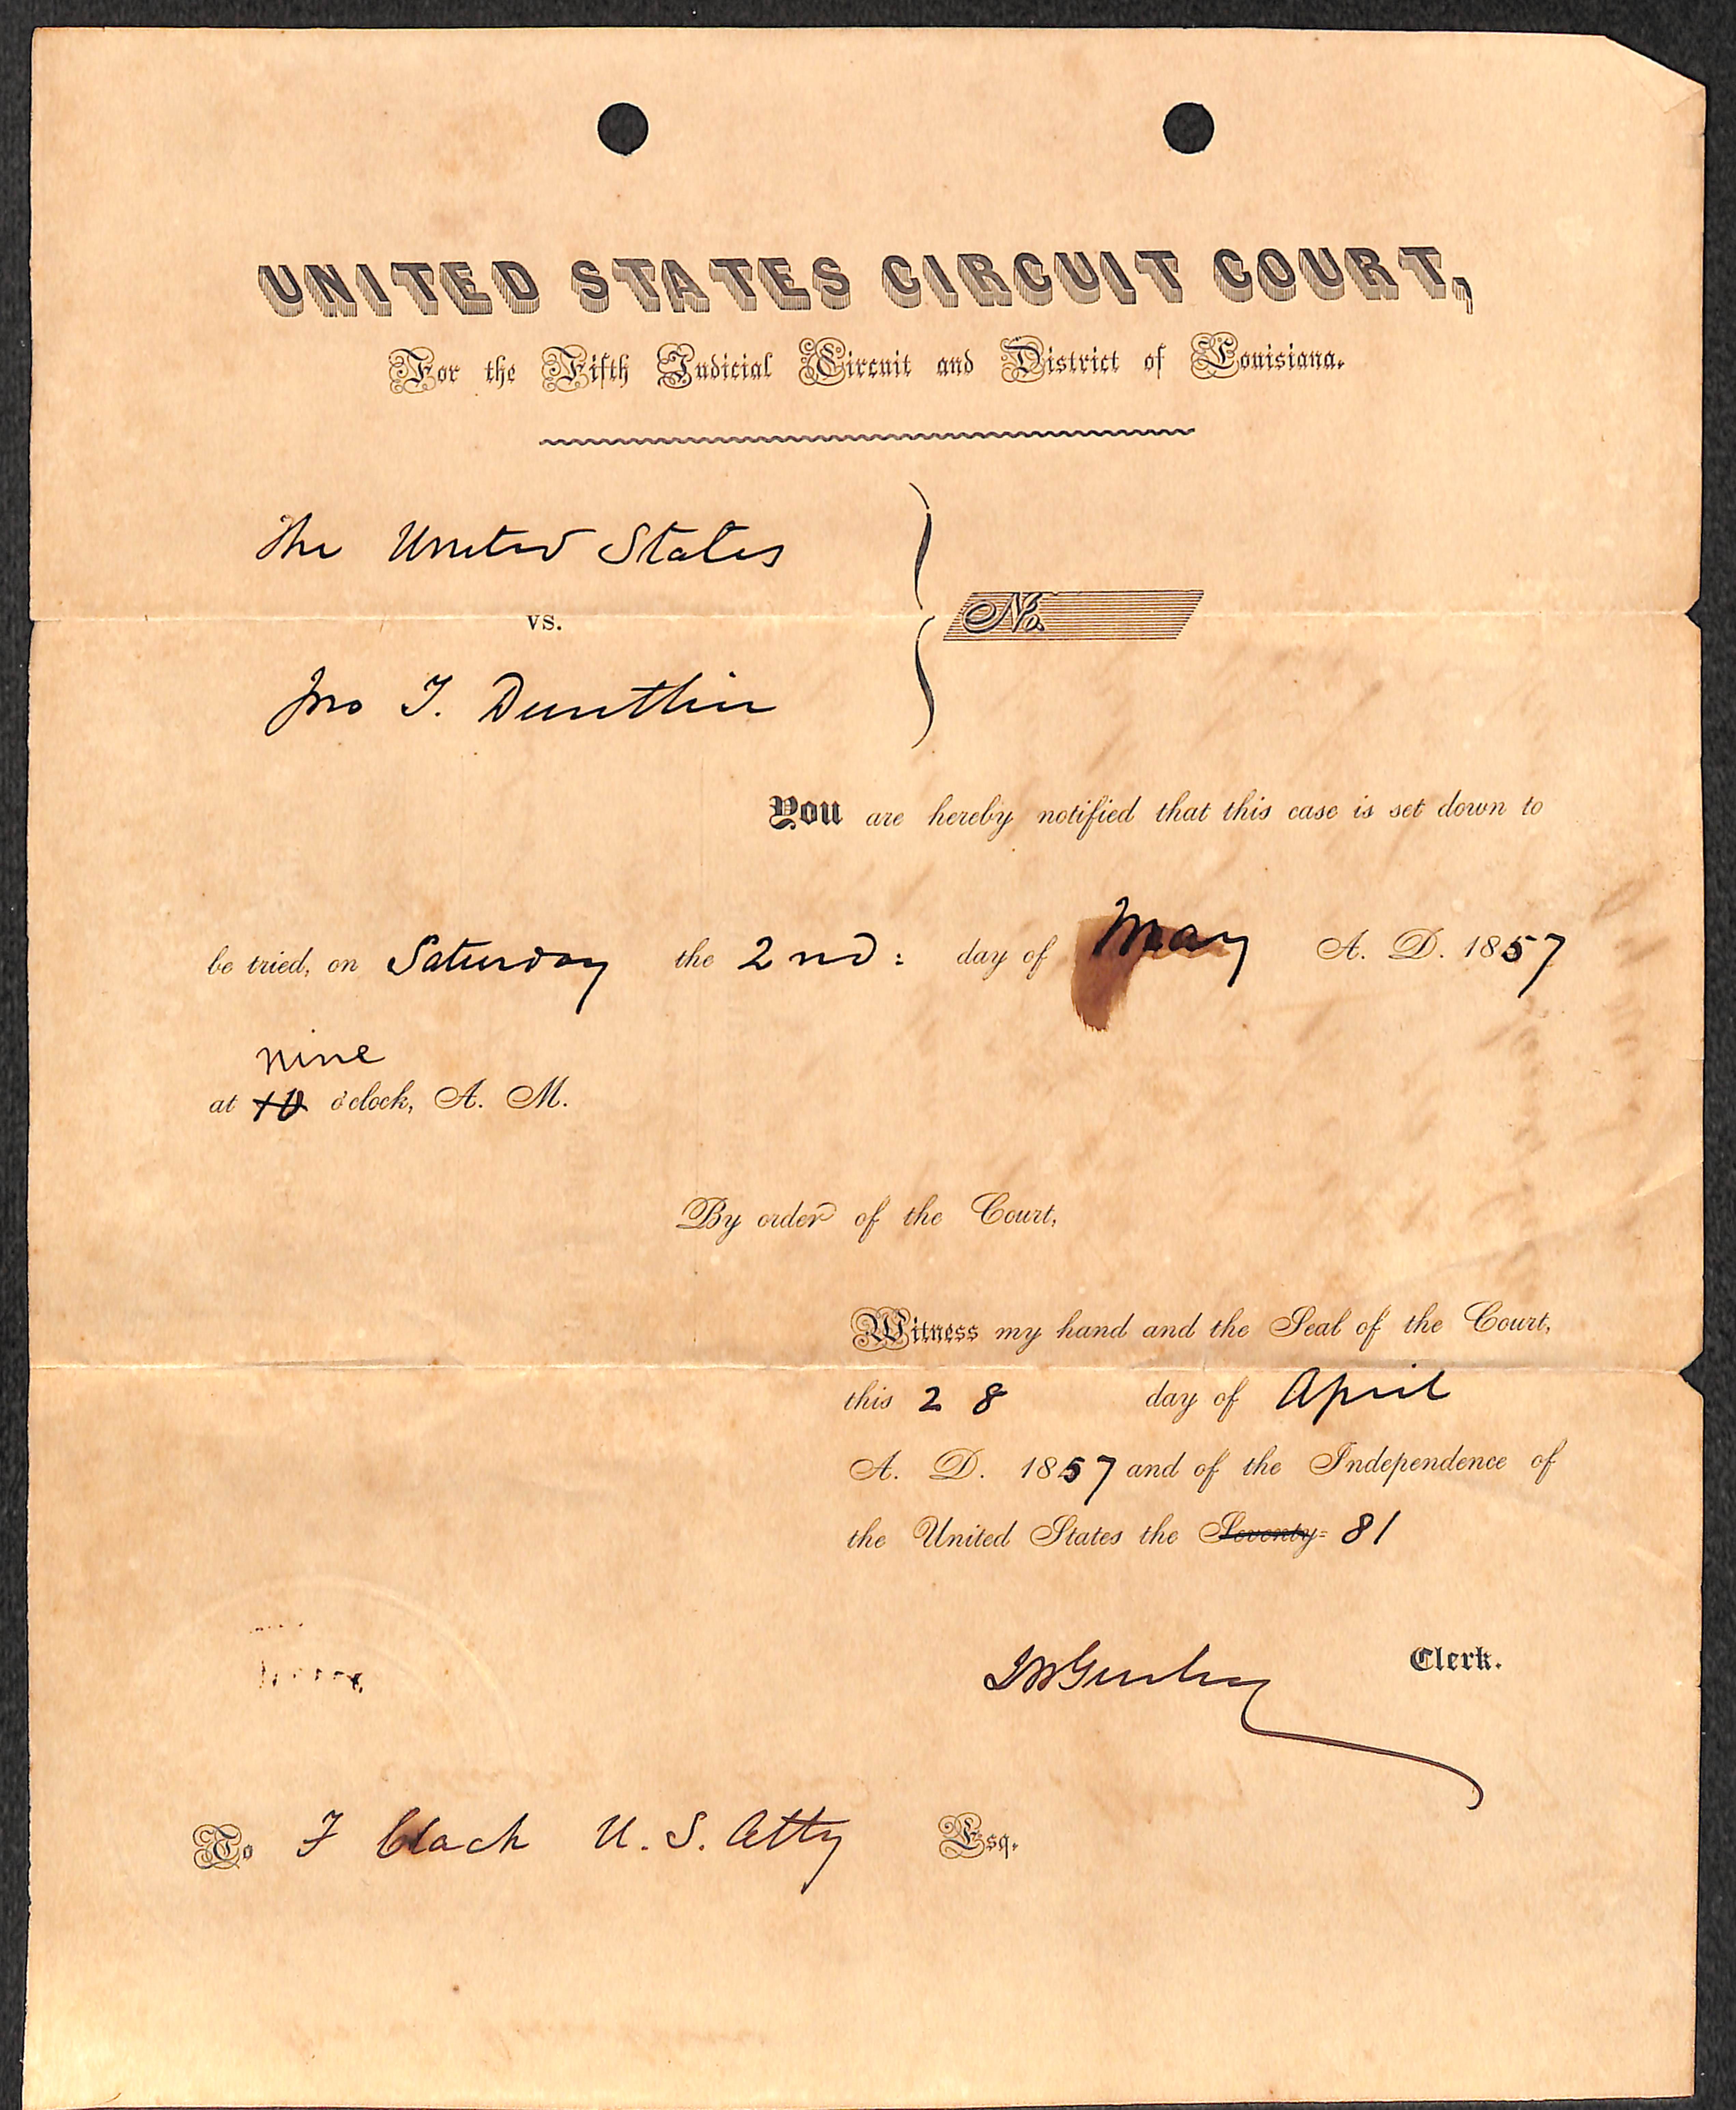 UNITED STATES CIRCUIT COURT,
For the Fifth Judicial Circuit and District of Louisiana.
The United States
vs.
No.
Jno T.
You are hereby notified that this case is set down to
be tried, on Saturday the 2nd: day of May A. D. 1857
nine
at 10 o'clock, A. M.
By order of the Court,
Witness my hand and the Seal of the Court,
this 28 day of April
A. D. 1857 and of the Independence of
the United States the Seventy- 81
Clerk.
To F Clack U.S. Atty Esq.